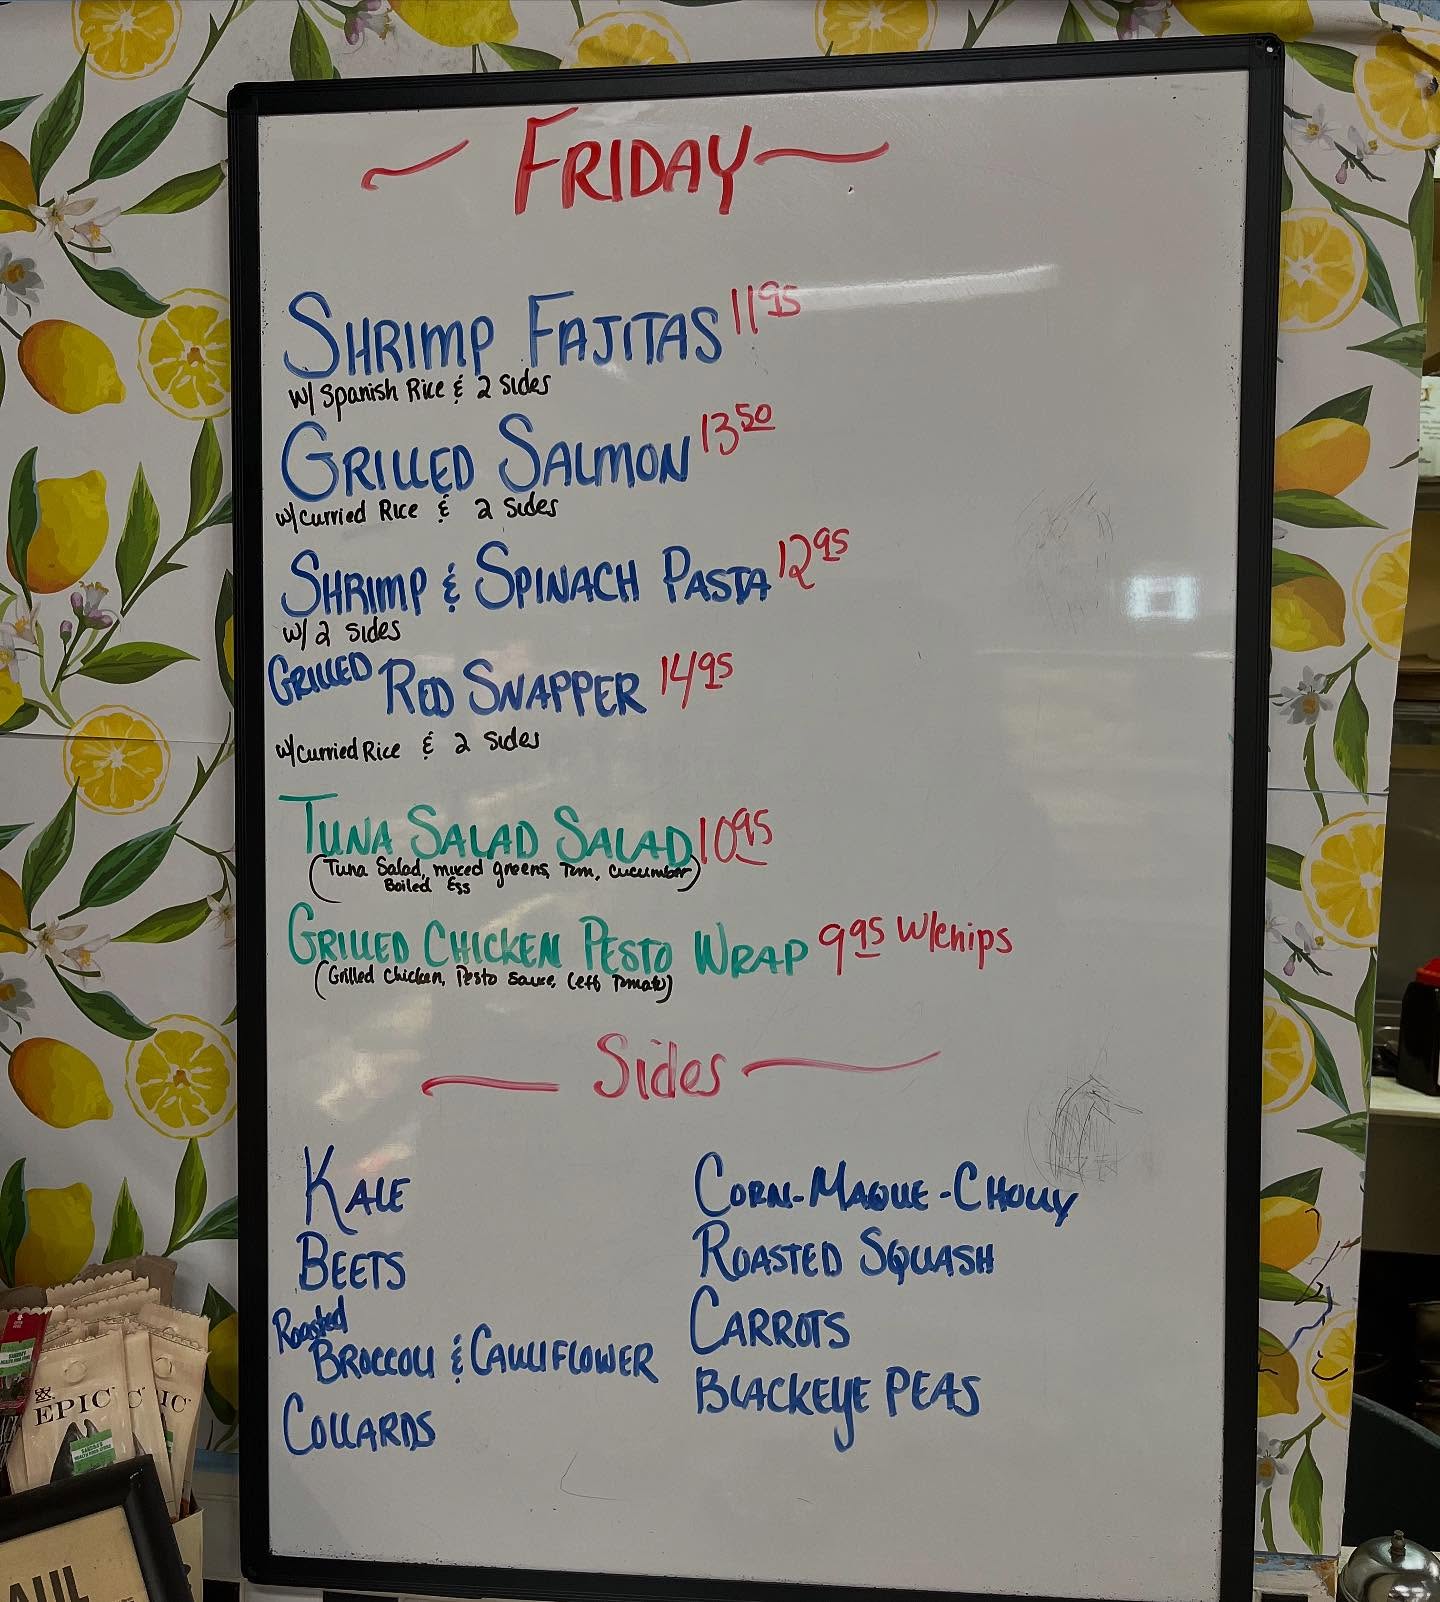 FRIDAY
SHRIMP FAJITAS 11.95
w/ Spanish Rice & 2 Sides
GRILLED SALMON 13.50
w/ Curried Rice & 2 Sides
SHRIMP & SPINACH PASTA 12.95
w/ 2 Sides
GRILLED RED SNAPPER 14.95
w/ Curried Rice & 2 Sides
TUNA SALAD SALAD 10.95
(Tuna Salad, mixed greens, Tom, cucumber)
Boiled Egg
GRILLED CHICKEN PESTO WRAP 9.95 W/chips
(Grilled Chicken, Pesto Sauce, Lett Tomato)
Sides
KALE
BEETS
Roasted
BROCCOLI & CAULIFLOWER
COLLARDS
CORN-MAQUE-CHOUX
ROASTED SQUASH
CARROTS
BLACKEYE PEAS
EPIC